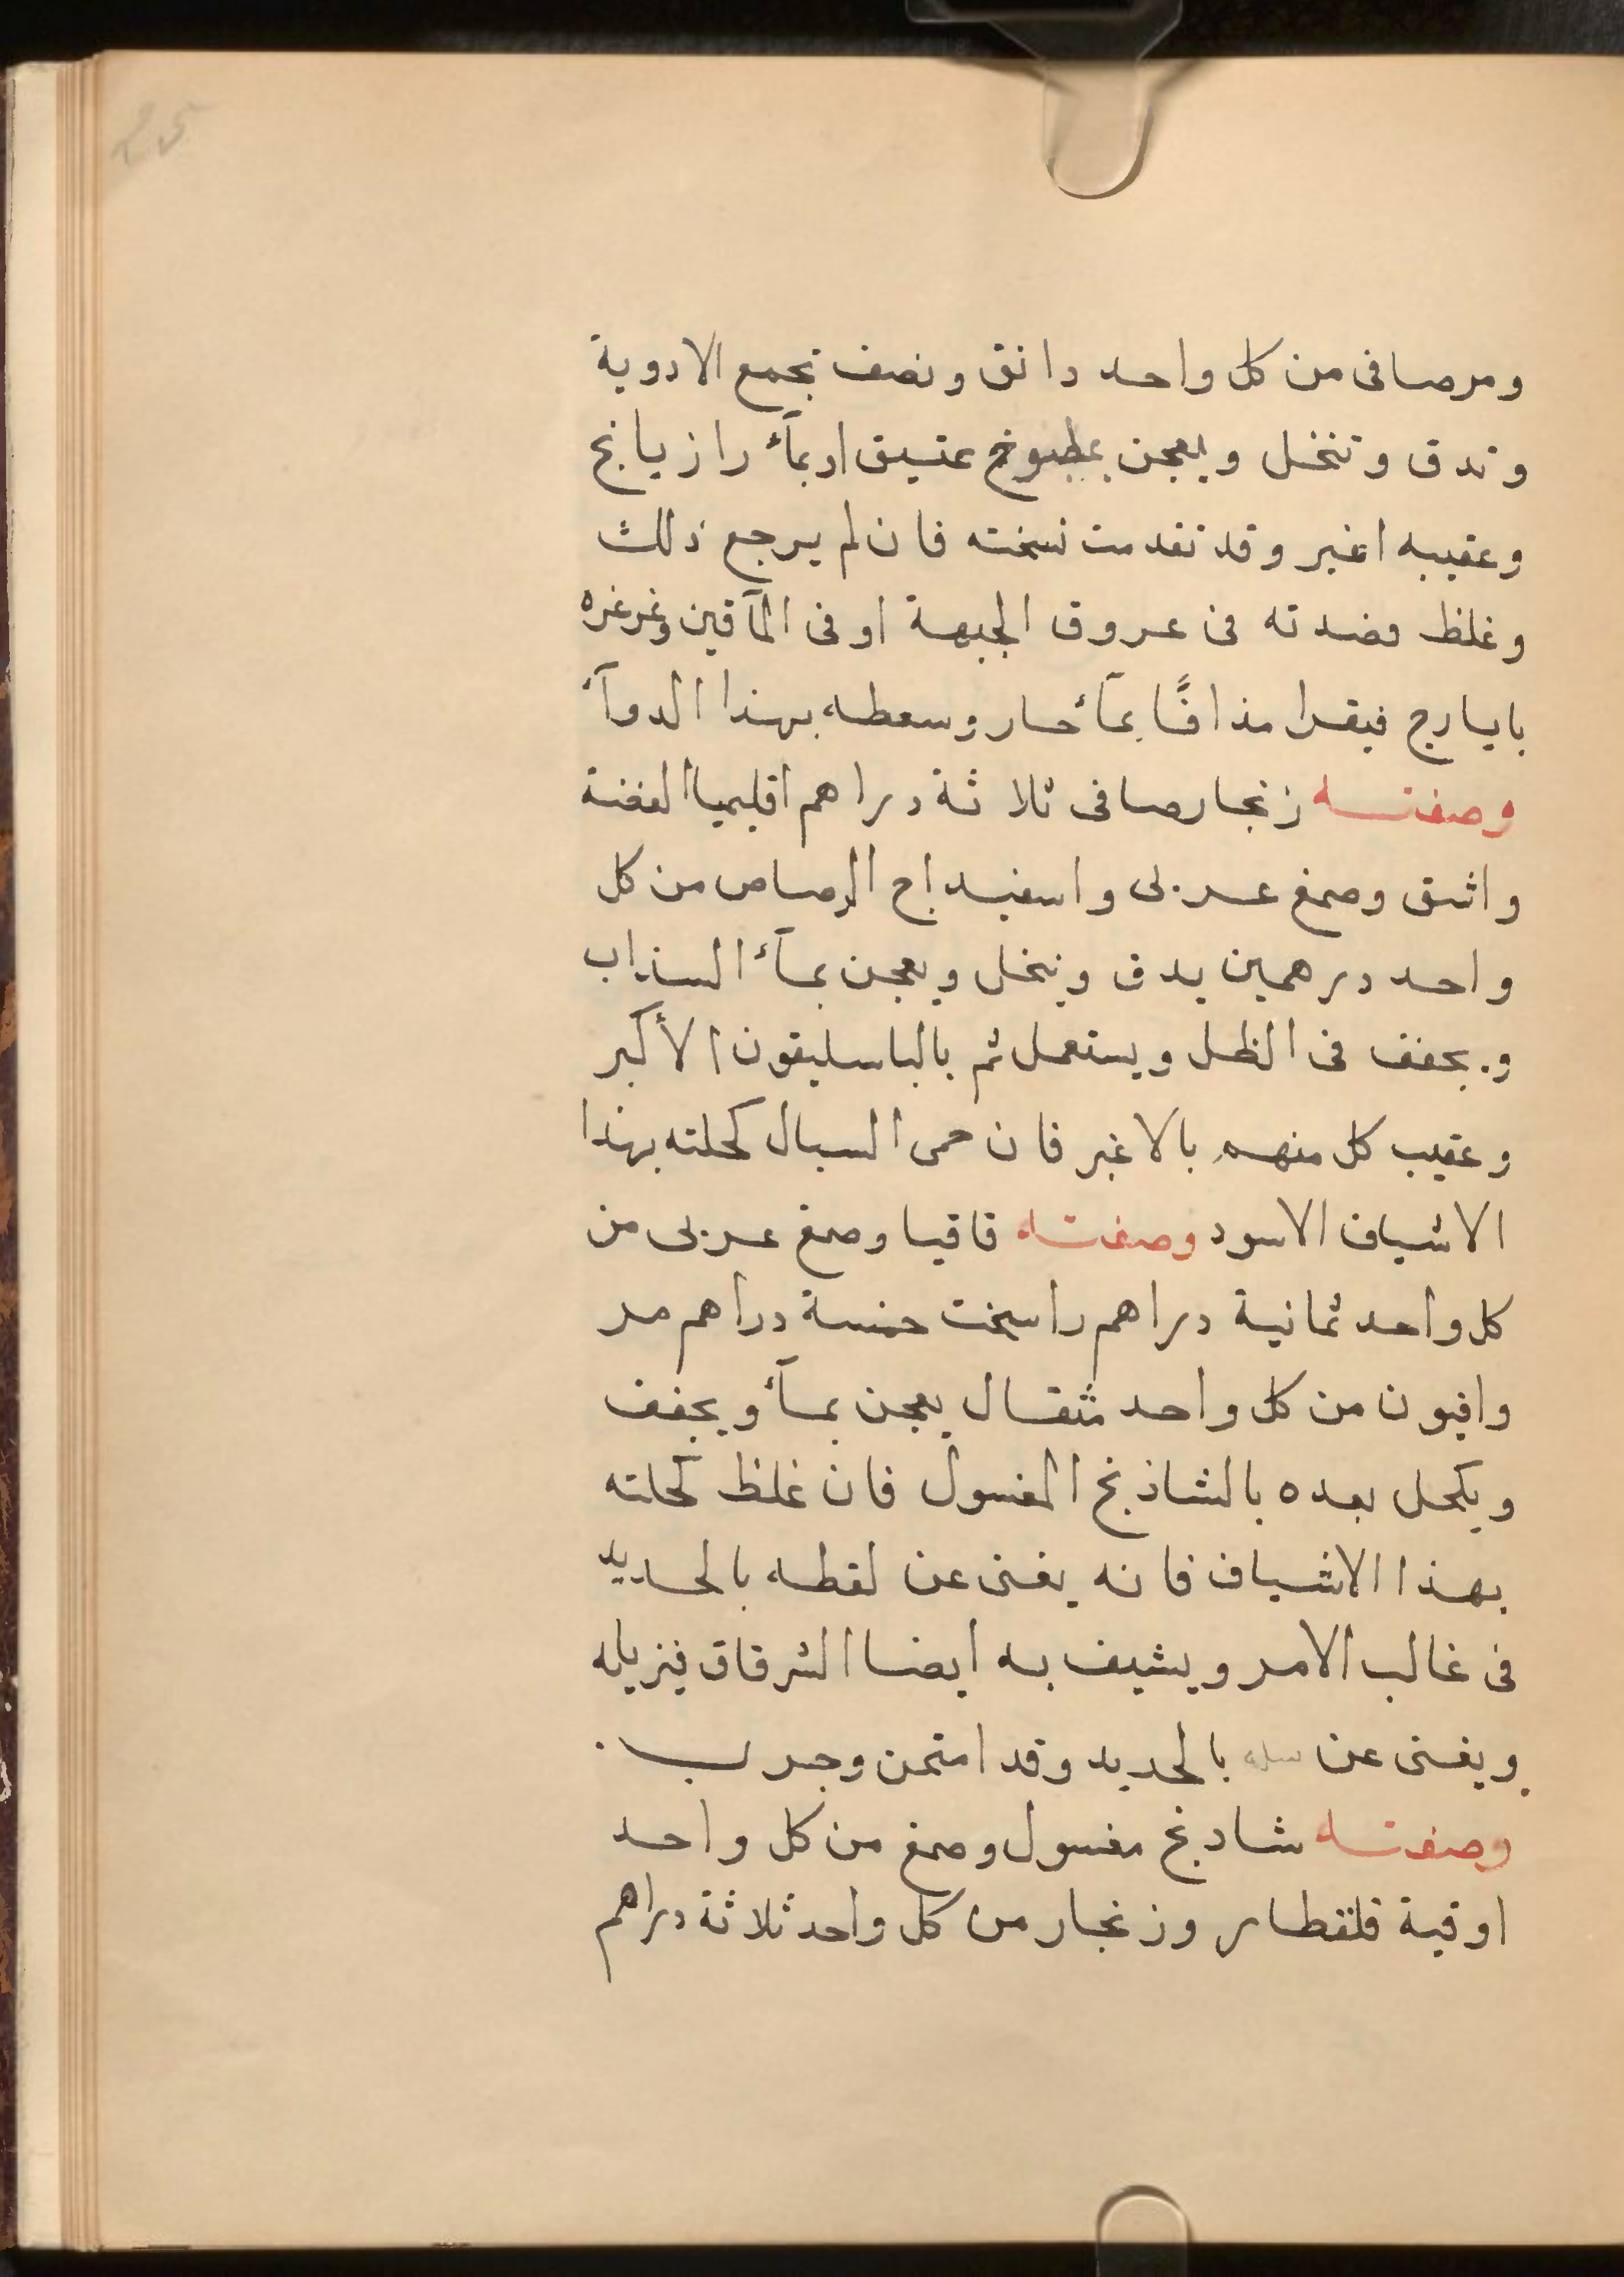 25
ومرصافى من كل واحد دانق ونصف تجمع الادوية
وتدق وتنخل ويعجن بمطبوخ عتيق اوبمآء رازيانج
وعقيبه اغبر وقد تقدمت نسخته فان لم يرجع ذلك
وغلظ فصدته فى عروق الجبهة اوفى المآقين وغرغره
بايارج فيقرا مذافًا بمآء حار وسعطه بهذا الدوآء
وصفته زنجار صافى ثلاثة دراهم اقليميا الفضة
واشق وصمغ عربى واسفيداج الرصاص من كل
واحد درهمين يدق وينخل ويعجن بمآء السذاب
ويجفف فى الظل ويستعمل ثم بالباسليقون الأكبر
وعقيب كل منهم بالاغبر فان حمى السبال كحلته بهذا
الاشياف الاسود وصفته قاقيا وصمغ عربى من
كل واحد ثمانية دراهم راسخت خمسة دراهم مر
وافيون من كل واحد مثقال يعجن بمآء ويجفف
ويكحل بعده بالشاذنج المغسول فان غلظ كحلته
بهذا الاشياف فانه يغنى عن لقطه بالحديد
فى غالب الامر ويشيف به ايضا الشرقاق فيزيله
ويغنى عن سله بالحديد وقد امتحن وجرب
وصفته شادنج مغسول وصمغ من كل واحد
اوقية قلقطار وزنجار من كل واحد ثلاثة دراهم